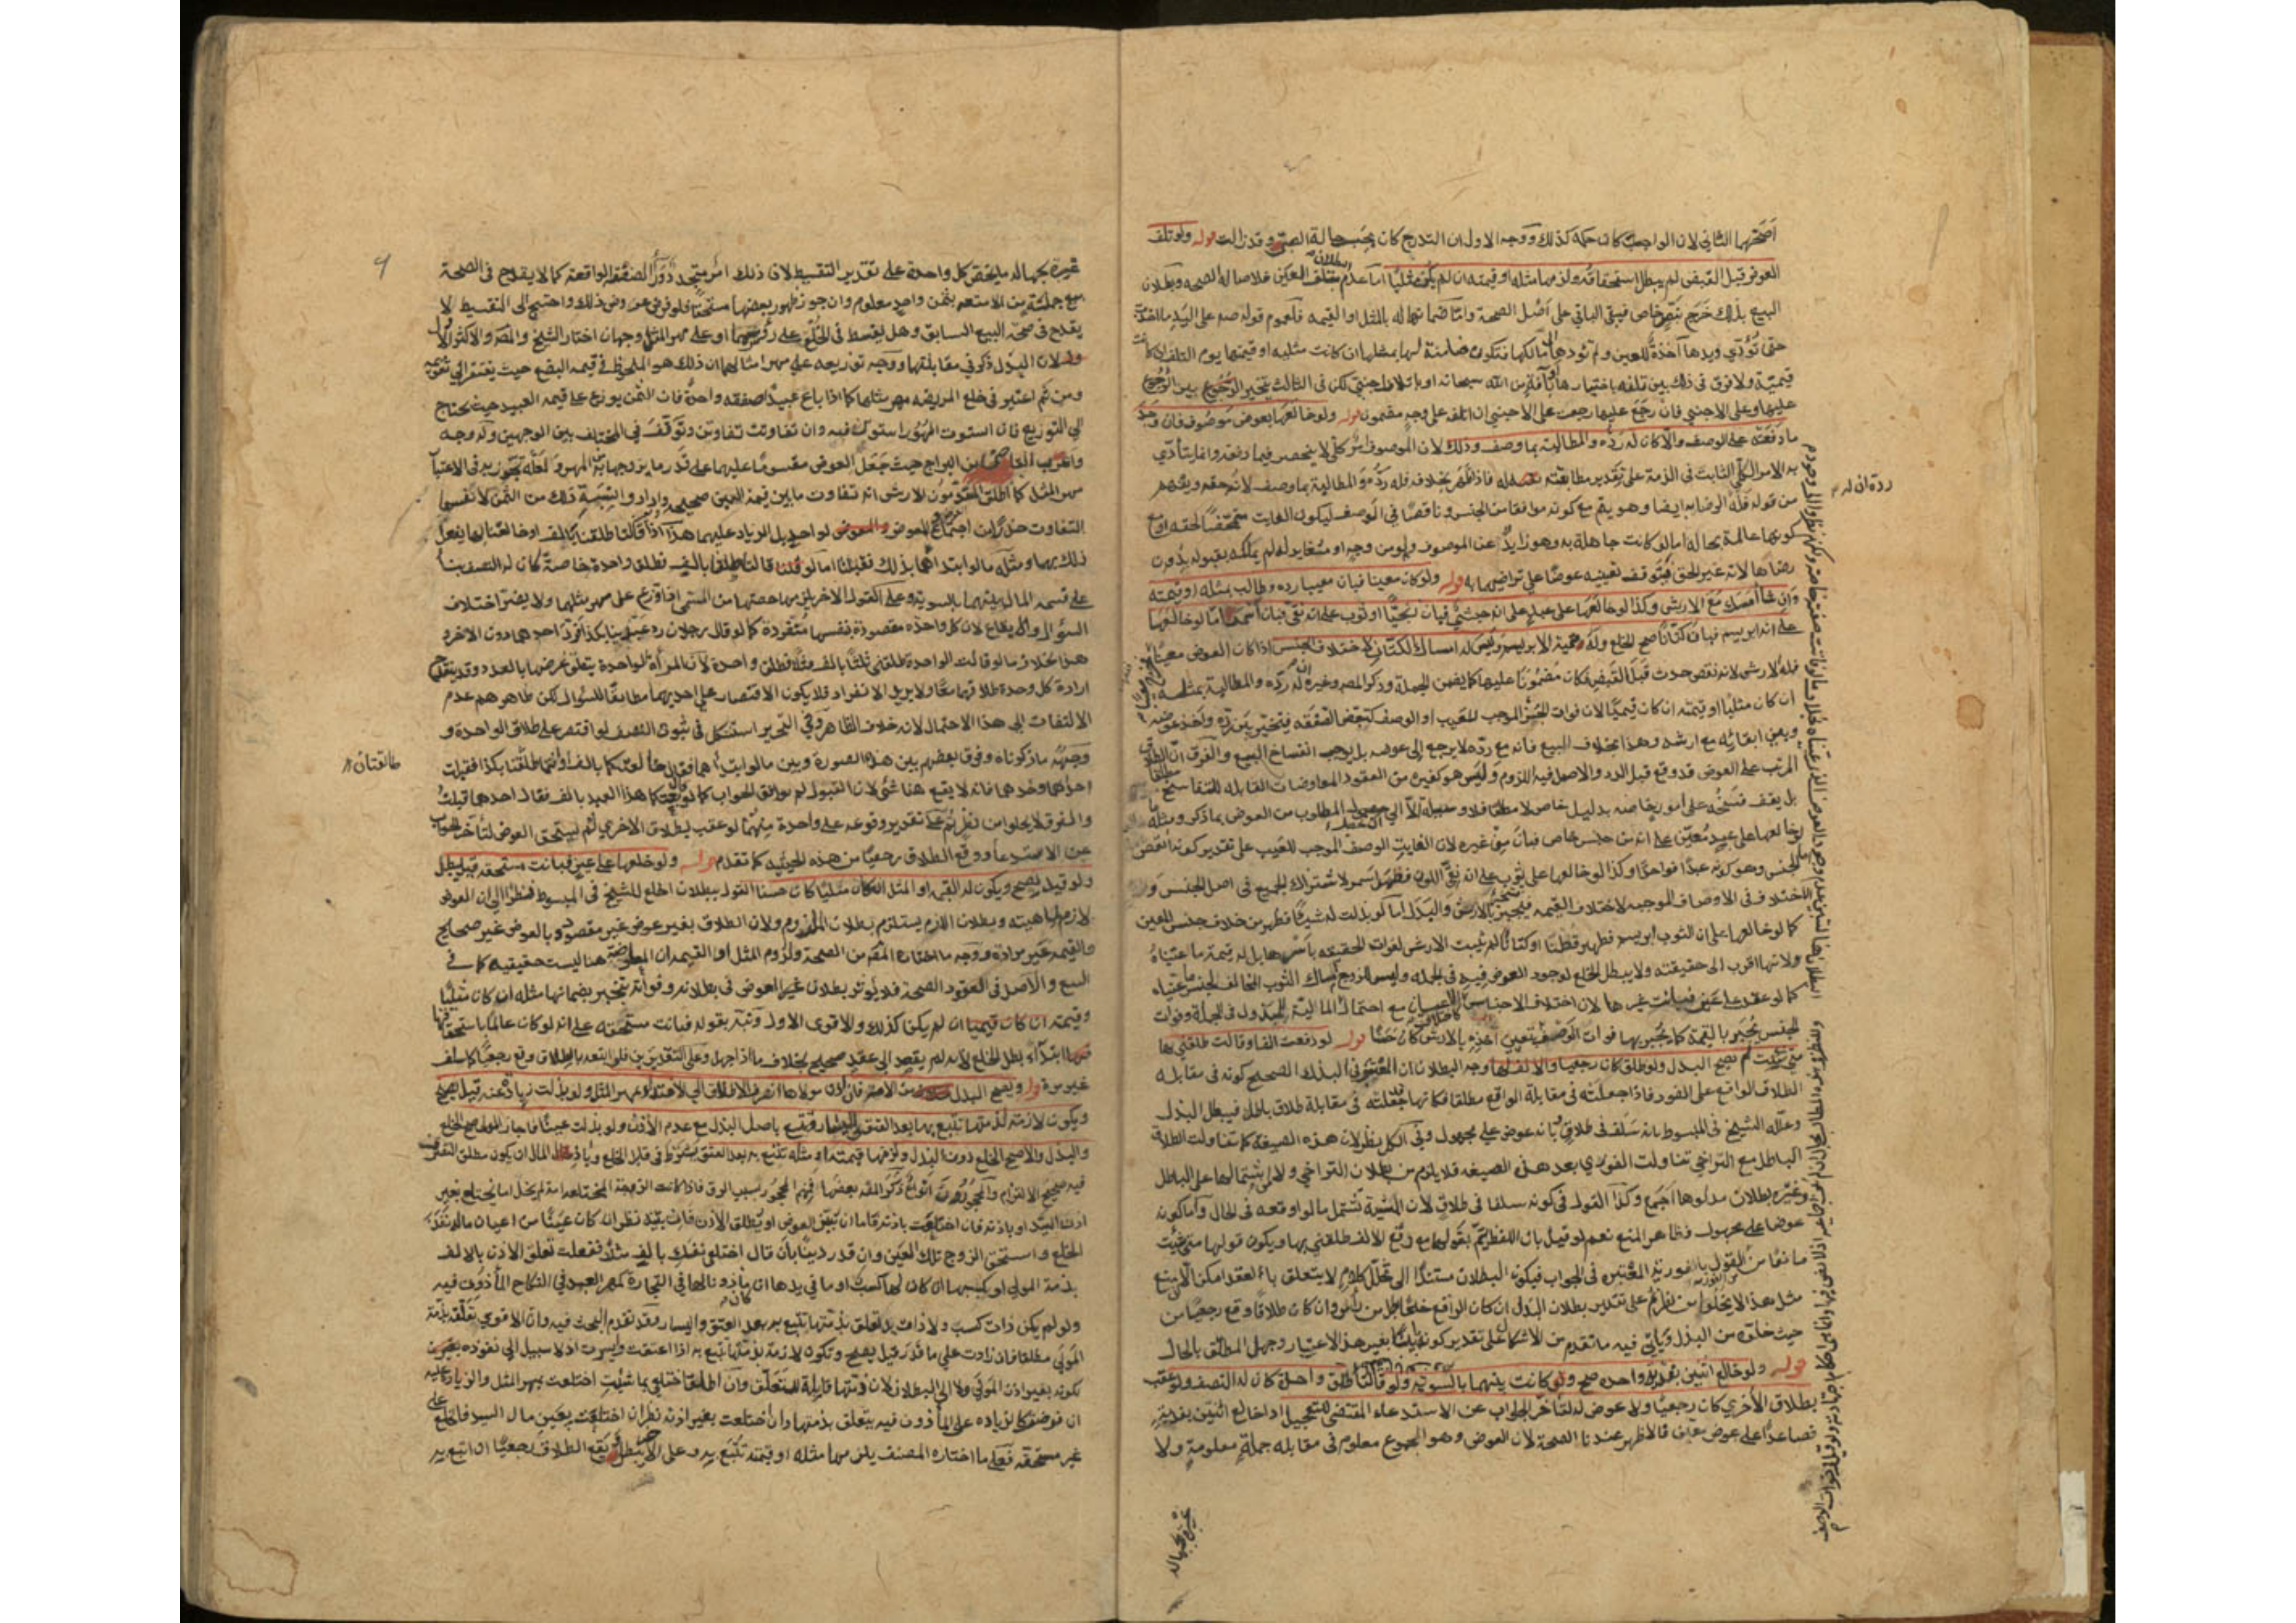 أصحهما الثاني لان الواجب كان حكمه كذلك ووجه الاول ان التدرج كان بحسب حالة الصبي وقد زالت قوله ولو تلف
العوض قبل القبض لم يبطل استحقاقه ولزمها مثله او قيمته ان لم يكن مثليا اما عدم البطلان بتلف العين فلاصالة الصحة وبطلان
البيع بذلك خرج بنص خاص فيبقى الباقي على اصل الصحة واما ضمانها له بالمثل او القيمه فلعموم قوله صه على اليد ما اخذت
حتى تؤدي ويدها آخذة للعين ولم تؤدها الى مالكها فتكون ضامنة لها بمثلها ان كانت مثليه او قيمتها يوم التلف ان كانت
قيميّة ولا فرق في ذلك بين تلفه باختيارها او بآفة من الله سبحانه او باتلاف اجنبي لكن في الثالث يتخير الزوج بين الرجوع
عليها وعلى الاجنبي فان رجع عليها رجعت على الاجنبي ان اتلفه على وجه مضمون قوله ولو خالعها بعوض موصوف فان وجد
ما دفعته على الوصف والا كان له رده والمطالبة بما وصف وذلك لان الموصوف امر كلي لا ينحصر فيما دفعته وانما يتأدي
به الامر الكلي الثابت في الذمة على تقدير مطابقته له فاذا ظهر بخلافه فله رده والمطالبة بما وصف لانه حقه ويفهم
من قوله فله الرضا به ايضا وهو يتم مع كونه موافقا من الجنس وناقصا في الوصف ليكون الفايت متمحضا لحقه او مع
كونها عالمة بحاله اما لو كانت جاهلة به وهو زايد عن الموصوف ولو من وجه او مغاير له لم يملكه بقبوله بدون
رضاها لانه غير الحق فيتوقف تعيينه عوضا على تراضيهما به قوله ولو كان معينا فبان معيبا رده وطالب بمثله او قيمته
وان شاء امسك مع الارش وكذا لو خالعها على عبد على انه حبشي فبان زنجيا او ثوب على انه نقي فبان اسمر اما لو خالعها
على انه ابريسم فبان كتانا صح الخلع وله قيمة الابريسم وليس له امساك الكتان لاختلاف الجنس اذا كان العوض معينا
فله الارش لانه نقص حدث قبل القبض فكان مضمونا عليها كما يضمن الجملة وذكر المصر وغيره ان له رده والمطالبة بمثله
ان كان مثليا او قيمته ان كان قيميا لان فوات الجزء الموجب للعيب او الوصف كتبعض الصفقه فيتخير بين رده واخذ عوضه
وبين ابقائه مع ارشه وهذا بخلاف البيع فانه مع رده لا يرجع الى عوضه بل يوجب انفساخ البيع والفرق ان الطلاق
المرتب على العوض قد وقع قبل الرد والاصل فيه اللزوم وليس هو كغيره من العقود المعاوضات القابله للتفاسخ مطلقا
بل يقف فسخه على امور خاصه بدليل خاص لا مطلقا فلا سبيل الا الى تحصيل المطلوب من العوض بما ذكر ومثله ما
لو خالعها على عبد معين على انه من جنس خاص فبان من غيره لان الفايت الوصف الموجب للعيب على تقدير كونه انقص
الجنس وهو كونه عبدا فواحدا وكذا لو خالعها على ثوب على انه نقي اللون فظهر اسمر لاشتراك الجميع في اصل الجنس و
الاختلاف في الاوصاف الموجبه لاختلاف القيمه فينجبر بالارش والبدل اما لو بذلت له شيئا فظهر من خلاف جنس المعين
كما لو خالعها على ان الثوب ابريسم فظهر قطنا او كتانا لم يثبت الارش لفوات الحقيقه باسرها بل له قيمة ما عيناه
ولانها اقرب الى حقيقته ولا يبطل الخلع لوجود العوض فيه في الجمله وليس للزوج امساك الثوب المخالف لجنس ما عيناه
كما لو عقد على عين فبانت غيرها لان اختلاف الاجناس كاختلاف الاعيان مع احتمال المالية للمبذول في الجملة وفوات
الجنس يجبر بالقيمة كما يجبر بها فوات الوصف فيتعين اخذه بالارش كان حسنا قوله لو دفعت الفا وقالت طلقني بها
متى شئت لم يصح البذل ولو طلق كان رجعيا والالف لها وجه البطلان ان المعتبر في البذل الصحيح كونه في مقابله
الطلاق الواقع على الفور فاذا جعلته في مقابلة الواقع مطلقا فكانها قد جعلته في مقابلة طلاق باطل فيبطل البذل
وعلله الشيخ في المبسوط بانه سلف في طلاق وبانه عوض على مجهول وفي الكل نظر لان هذه الصيغه كما تناولت الطلاق
الباطل مع التراخي تناولت الفوري بعد هذه الصيغه فلا يلزم من بطلان التراخي ولا من اشتمالها على الباطل
وغيره بطلان مدلولها اجمع وكذا القول في كونه سلفا في طلاق لان المشية تشتمل ما لو اوقعه في الحال واما كونه
عوضا على مجهول فظاهر المنع نعم لو قيل بان اللفظ انما يتم بقولها مع رفع الالف طلقني بها ويكون قولها متى شئت
مانعا من القول بالفورية المعتبره في الجواب فيكون البطلان مستندا الى تخلل كلام لا يتعلق بالعقد امكن الا ان منع
مثل هذا لا يخلو من نظر ثم على تقدير بطلان البذل ان كان الواقع خلعا بطل من راس وان كان طلاقا وقع رجعيا من
حيث خلوه من البذل وياتي فيه ما تقدم من الاشكال على تقدير كونه باينا بغير هذا الاعتبار وجهل المطلق بالحال
قوله ولو خالع اثنتين بفدية واحده صح وكانت بينهما بالسويه ولو قالتا طلقنا بالف فطلق واحدة كان له النصف ولو عقب
بطلاق الاخري كان رجعيا ولا عوض له لتاخر الجواب عن الاستدعاء المقتضي للتعجيل اذا خالع اثنتين بفدية
فصاعدا على عوض معين فالاظهر عندنا الصحة لان العوض وهو المجموع معلوم في مقابله جملة معلومة ولا
غيره بجهاله
رده ان له
غيره بجهاله ما يخص كل واحدة على تقدير التقسيط لان ذلك امر متجدد دون الصفقة الواقعة كما لا يقدح في الصحة
بيع جملة من الامتعه بثمن واحد معلوم وان جوز ظهور بعضها مستحقا فلو فرض عروض ذلك واحتيج الى التقسيط لا
يقدح في صحة البيع السابق وهل يقسط في الخلع على رؤسهما او على مهر المثل وجهان اختار الشيخ والمصر والاكثر الاول
ولان البذل ذكر في مقابلتها ووجه توزيعه على مهر امثالهما ان ذلك هو الملحوظ في قيمه البضع حيث يفتقر الى تقويمه
ومن ثم اعتبر في خلع المريضه مهر مثلها كما اذا باع عبيدا صفقه واحدة فان الثمن يوزع على قيمه العبيد حيث يحتاج
الى التوزيع فان استوت المهور استوت فيه وان تفاوتت تفاوتن وتوقف في المختلف بين الوجهين وله وجه
واغرب القاضي ابن البراج حيث جعل العوض مقسوما عليهما على قدر ما يزوجها به من المهر ولعله تجوز به في الاعتبا
مهر المثل كما اطلق المتقدمون الارش انه تفاوت ما بين قيمة العين صحيحه وارادوا نسبة ذلك من الثمن لا نفس
التفاوت حذرا من اجتماع العوض والمعوض لواحد بل الزياد عليهما هذا اذا قالتا طلقنا بالف او خالعنا بها ففعل
ذلك بهما ومثله ما لو ابتداهما بذلك فقبلتا اما لو قالتا طلقنا بالف فطلق واحدة خاصة كان له النصف بناء
على قسمه المال بينهما بالسويه وعلى القول الاخر يلزمها حصتها من المسمى اذا وزع على مهر مثلهما ولا يضر اختلاف
السؤال والايقاع لان كل واحده مقصودة بنفسها منفردة كما لو قال رجلان رد عبدينا بكذا فرد احدهما دون الاخر و
هذا بخلاف ما لو قالت الواحدة طلقني ثلثا بالف مثلا فطلق واحدة لان المراة الواحدة يتعلق غرضها بالعدد وقد ينقدح
ارادة كل وحدة طلاقهما معا ولا يريد الانفراد فلا يكون الاقتصار على احديهما مطابقا للسؤال لكن ظاهرهم عدم
الالتفات الى هذا الاحتمال لانه خلاف الظاهر وفي التحرير استشكل في ثبوت النصف لو اقتصر على طلاق الواحدة و
وجهه ما ذكرناه وفرق بعضهم بين هذه الصورة وبين ما لو ابتداهما فقال خالعتكما بالف او انتما طالقتان بكذا فقبلت
احدهما وحدها فانه لا يقع هنا شئ لان القبول لم يوافق الجواب كما لو قال بعتكما هذا العبد بالف فقال احدهما قبلت
والفرق لا يخلو من نظر ثم على تقدير وقوعه على واحدة منهما لو عقب بطلاق الاخري لم يستحق العوض لتاخر الجواب
عن الاستدعاء ووقع الطلاق رجعيا من هذه الحيثيه كما تقدم قوله ولو خالعها على عين فبانت مستحقه قيل يبطل
ولو قيل يصح ويكون له القيمه او المثل ان كان مثليا كان حسنا القول ببطلان الخلع للشيخ في المبسوط نظرا الى ان العوض
لازم لماهيته وبطلان اللازم يستلزم بطلان الملزوم ولان الطلاق بغير عوض غير مقصود وبالعوض غير صحيح
والقيمه غير مرادة ووجه ما اختاره المصر من الصحة ولزوم المثل او القيمه ان المعاوضة هنا ليست حقيقيه كما في
البيع والاصل في العقود الصحة فلا يؤثر بطلان العوض في بطلانه وفواته ينجبر بضمانها مثله ان كان مثليا
وقيمته ان كان قيميا ان لم يكن كذلك والاقوى الاول ونبه بقوله فبانت مستحقه على انه لو كان عالما باستحقاقها
ابتداء بطل الخلع لانه لم يقصد الى عقد صحيح بخلاف ما اذا جهل وعلى التقديرين فلو اتبعه بالطلاق وقع رجعيا كما سلف
غير مرة قوله ويصح البذل من الامة فان اذن مولاها انصرف الاطلاق الى الافتداء بمهر المثل ولو بذلت زيادة عنه قيل يصح
ويكون لازمه لذمتها تتبع بها بعد العتق واليسار وتتبع باصل البذل مع عدم الاذن ولو بذلت عينا فاجاز المولى صح الخلع
والبذل والا صح الخلع دون البذل ولزمها قيمته او مثله تتبع به بعد العتق يشترط في قابل الخلع وباذل المال ان يكون مطلق التصرف
فيه صحيح الالتزام والمحجورون انواع ذكر المصر بعضها فمنهم المحجور بسبب الرق فاذا كانت الزوجة المختلعه امة لم يخل اما تختلع بغير
اذن السيد او باذنه فان اختلعت باذنه فاما ان يبين العوض او يطلق الاذن فان بينه نظر ان كان عينا من اعيان ماله نفذ
الخلع واستحق الزوج تلك العين وان قدر دينا بان قال اختلعي نفسك بالف مثلا ففعلت تعلق الاذن بالالف
بذمة المولى او بكسبها ان كان لها كسب او ما في يدها ان كان ماذونا لها في التجارة كمهر العبد في النكاح المأذون فيه
ولو لم يكن ذات كسب ولا ذات يد تعلق بذمتها تتبع به بعد العتق واليسار وقد تقدم البحث فيه وان الاقوى تعلقه بذمة
المولى مطلقا فان زادت على ما قدر قيل يصح وتكون لازمة بذمتها تتبع به اذا اعتقت وايسرت اذ لا سبيل الى نفوذه
لكونه بغير اذن المولى ولا الى البطلان لان ذمتها قابلة للتعلق وان اطلق اختلعي بما شئت اختلعت بمهر المثل والزياد عليه
ان فرضت كالزياده على المأذون فيه يتعلق بذمتها وان اختلعت بغير اذنه نظر ان اختلعت بعين مال السيد فالخلع على
غير مستحقه فعلى ما اختاره المصنف يلزمها مثله او قيمته تتبع به وعلى الاخر يبطل ويقع الطلاق رجعيا ان اتبع به
طالقتان